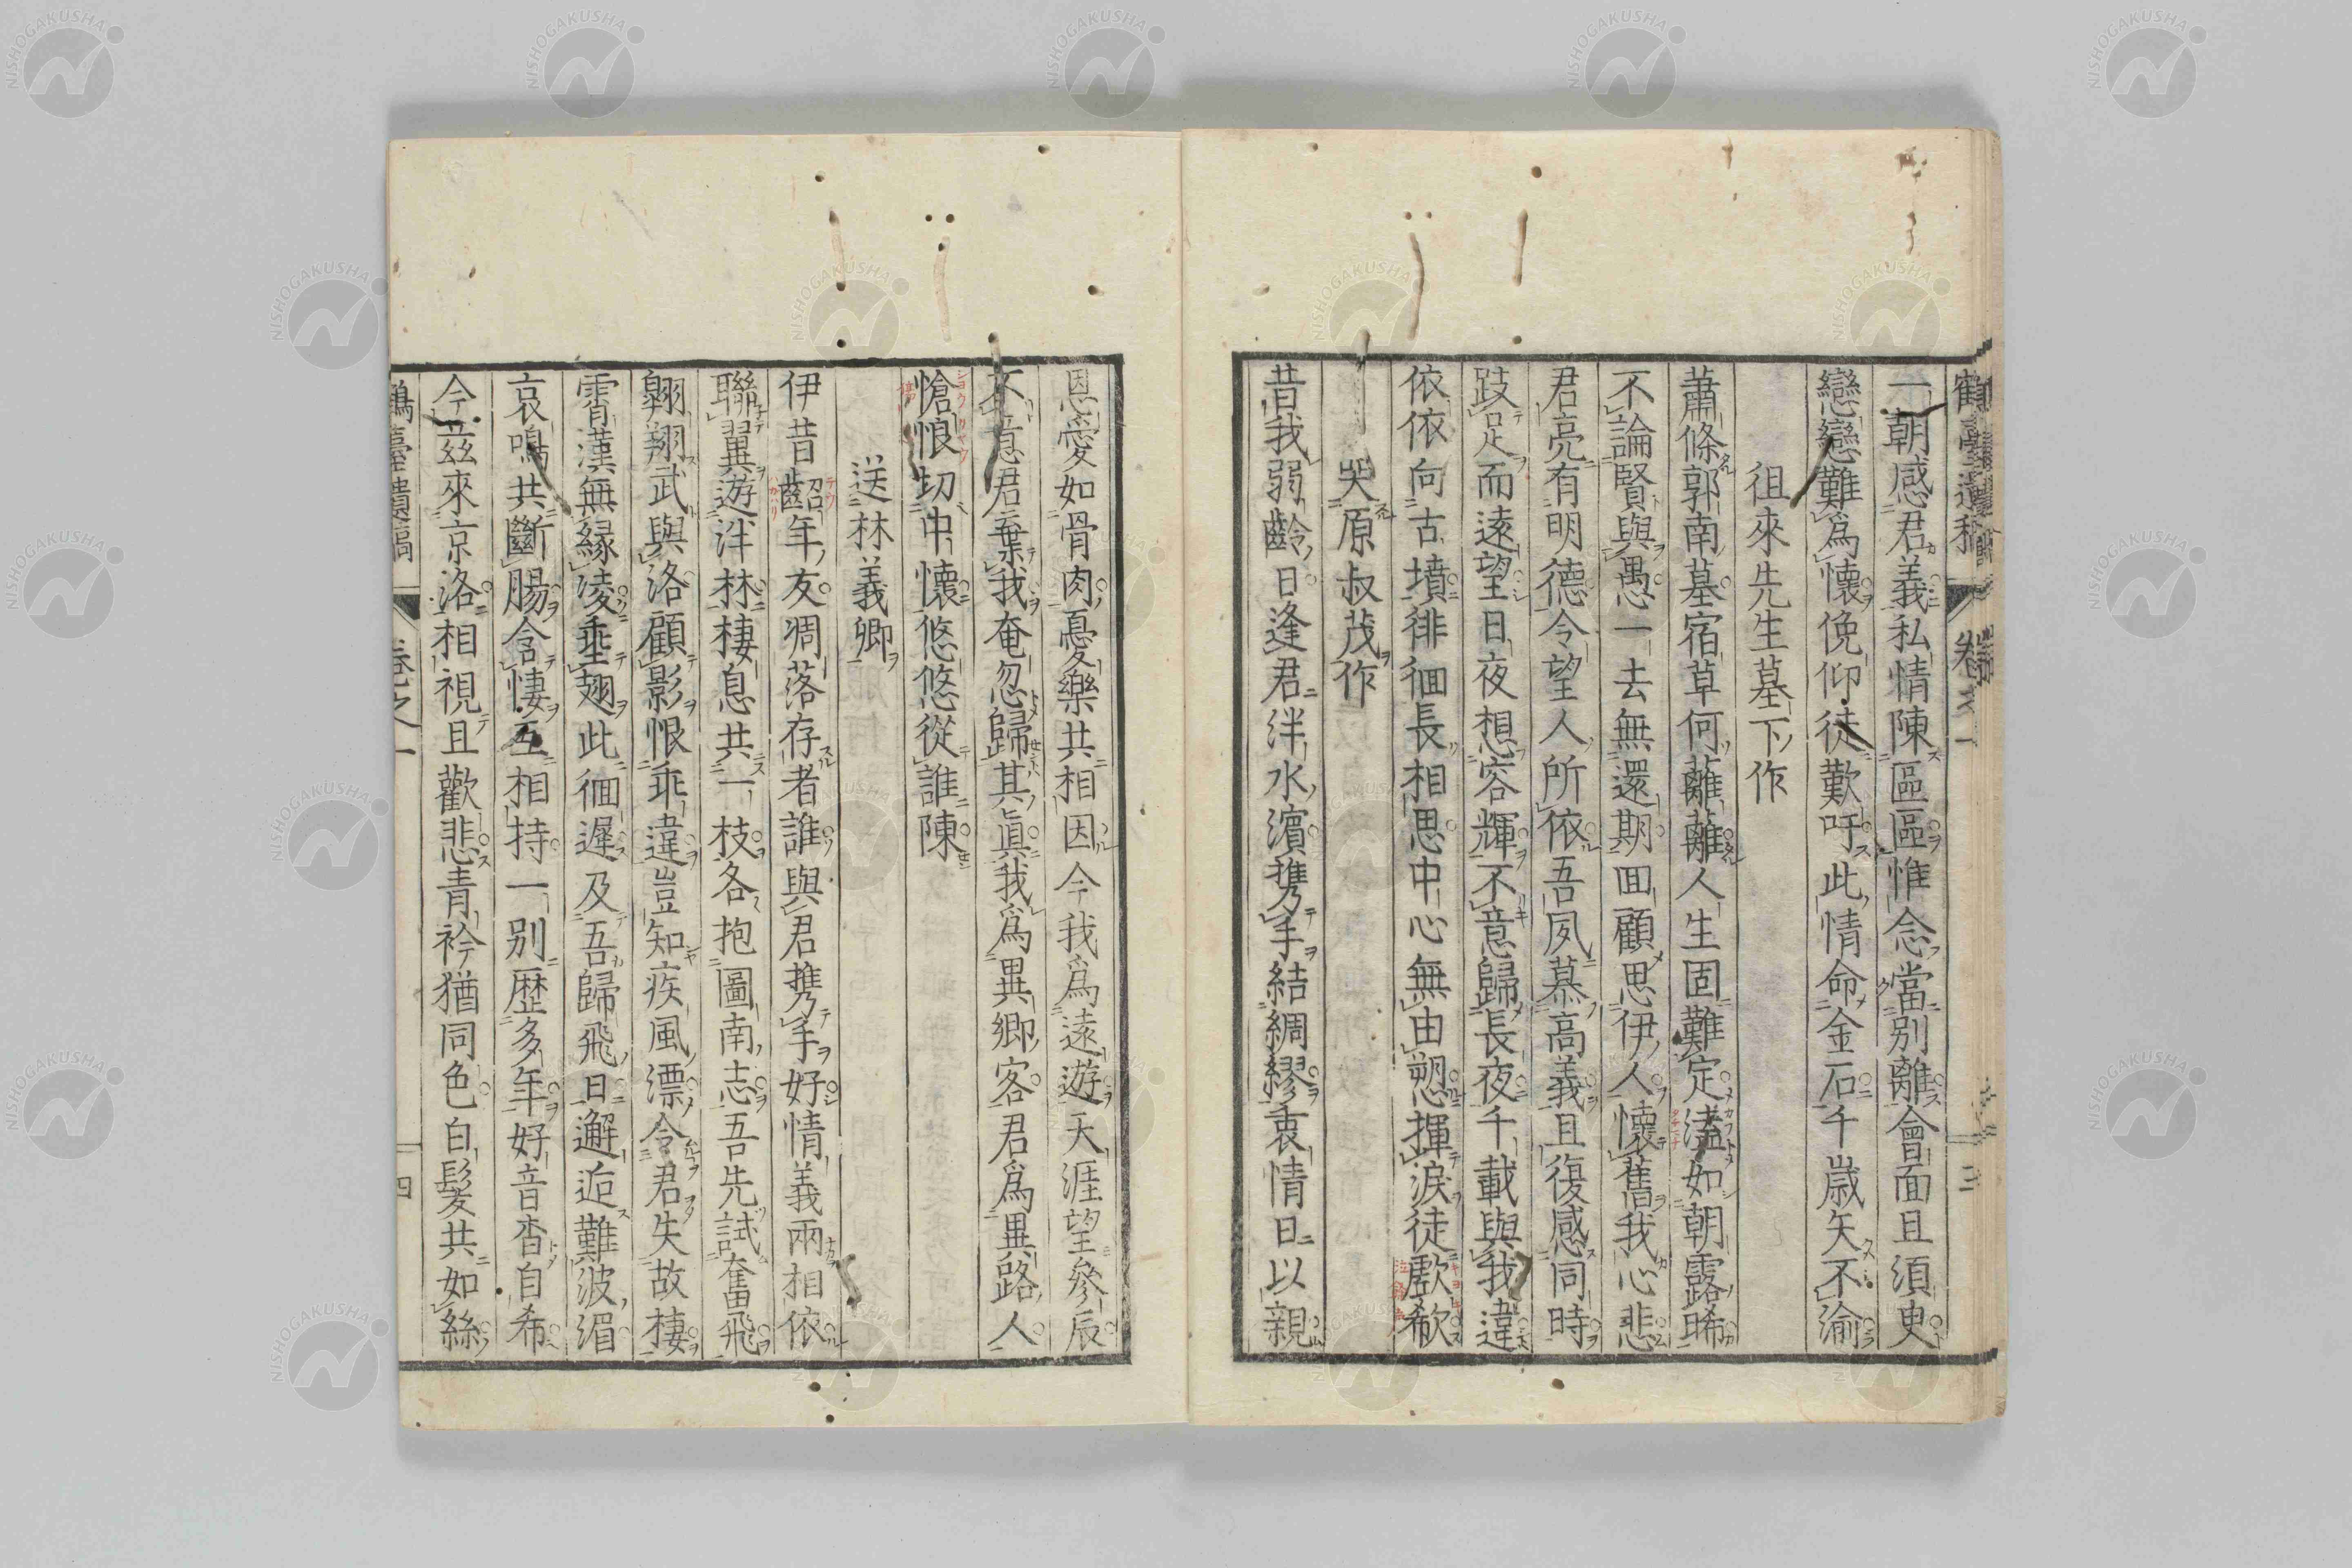 鶴臺遺稿 卷之一 三
一朝感君義私情陳區區惟念當別離會面且須臾
戀戀難爲懷俛仰徒歎吁此情命金石千歲矢不渝
徂來先生墓下作
蕭條郭南墓宿草何蘺蘺人生固難定溘如朝露晞
不論賢與愚一去無還期回顧思伊人懷舊我心悲
君亮有明德令望人所依吾夙慕高義且復感同時
跂足而遠望日夜想容輝不意歸長夜千載與我違
依依向古墳徘徊長相思中心無由愬揮淚徒歔欷
哭原叔茂作
昔我弱齡日逢君泮水濱携手結綢繆衷情日以親
恩愛如骨肉憂樂共相因今我爲遠遊天涯望參辰
不意君棄我奄忽歸其眞我爲異鄉客君爲異路人
愴悢切中懷悠悠從誰陳
送林義卿
伊昔齠年友凋落存者誰與君携手好情義兩相依
聯翼遊泮林棲息共一枝各抱圖南志吾先試奮飛
翺翔武與洛顧影恨乖違豈知疾風漂令君失故棲
霄漢無緣凌垂翅此徊遲及吾歸飛日邂逅難波湄
哀鳴共斷腸含悽互相持一別歷多年好音杳自希
今茲來京洛相視且歡悲青衿猶同色白髮共如絲
鶴臺遺稿 卷之一 四
NISHOGAKUSHA